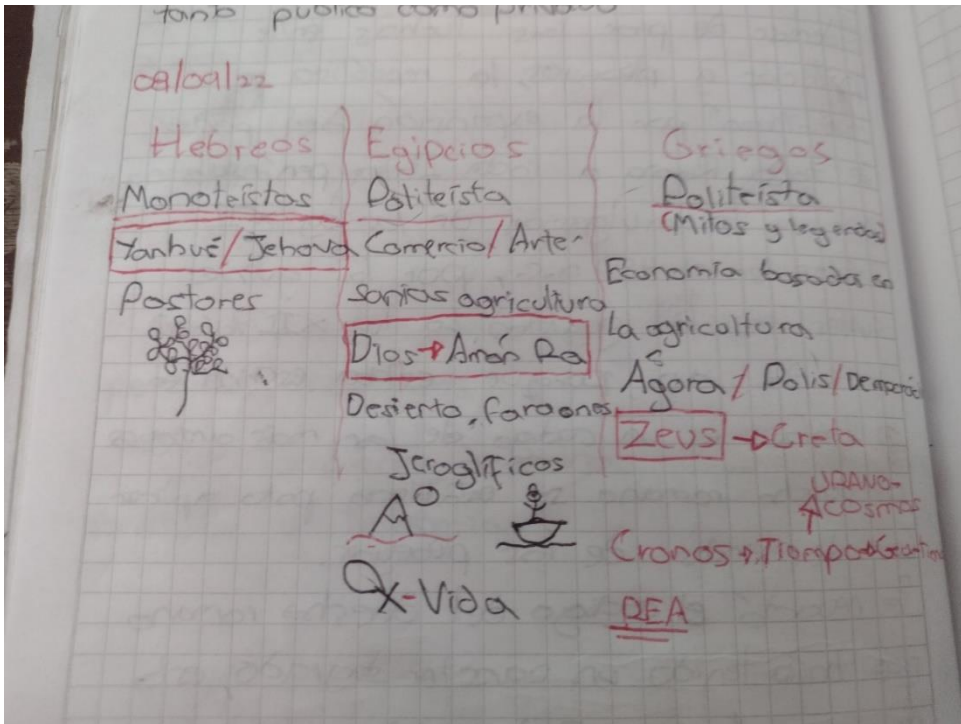 tanto publico como privado
08/09/22
Hebreos
Monoteístas
Yanhué/Jehova
Pastores
Egipcios
Politeísta
Comercio/Arte
agricultura
Dios → Amón Ra
Desierto, faraones
Jeroglíficos
-Vida
Griegos
Politeísta
(Mitos y leyendas)
Economía basada en
La agricoltura
Ágora / Polis/
Zeus → Creta
URANO-
cosmos
Cronos → Tiempo →
REA